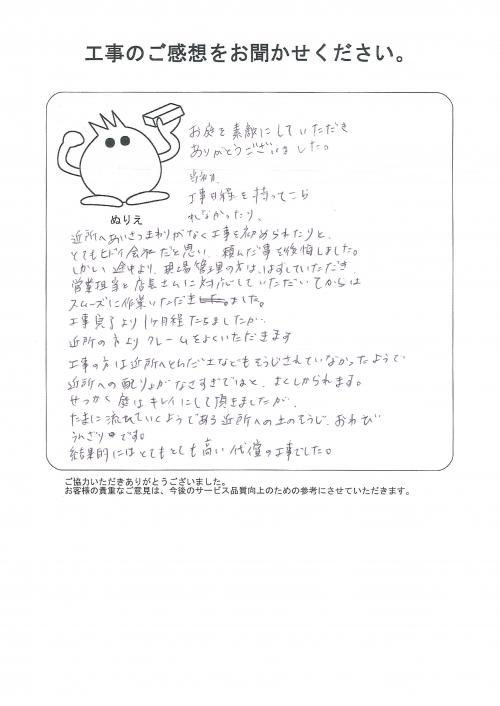 工事のご感想をお聞かせください。
お庭を素敵にしていただき
ありがとうございました。
当初は、
工事日程を持ってこら
れなかったり、
ぬりえ
近所へあいさつまわりがなく工事を初められたりと、
とてもヒドイ会社だと思い、頼んだ事を後悔しました。
しかし途中より、現場管理の方は、はずしていただき、
営業担当と店長さんに対応していただいてからは
スムーズに作業いただきました。
工事完了より1ヶ月程たちましたが、
近所の方よりクレームをよくいただきます
工事の方は近所へとんだ土などもそうじされていなかったようで
近所への配りょがなさすぎではと、よくしかられます。
せっかく庭はキレイにして頂きましたが、
たまに流れていくようである近所への土のそうじ、おわび
うんざりです。
結果的にはとてもとても高い代償の工事でした。
ご協力いただきありがとうございました。
お客様の貴重なご意見は、今後のサービス品質向上のための参考にさせていただきます。